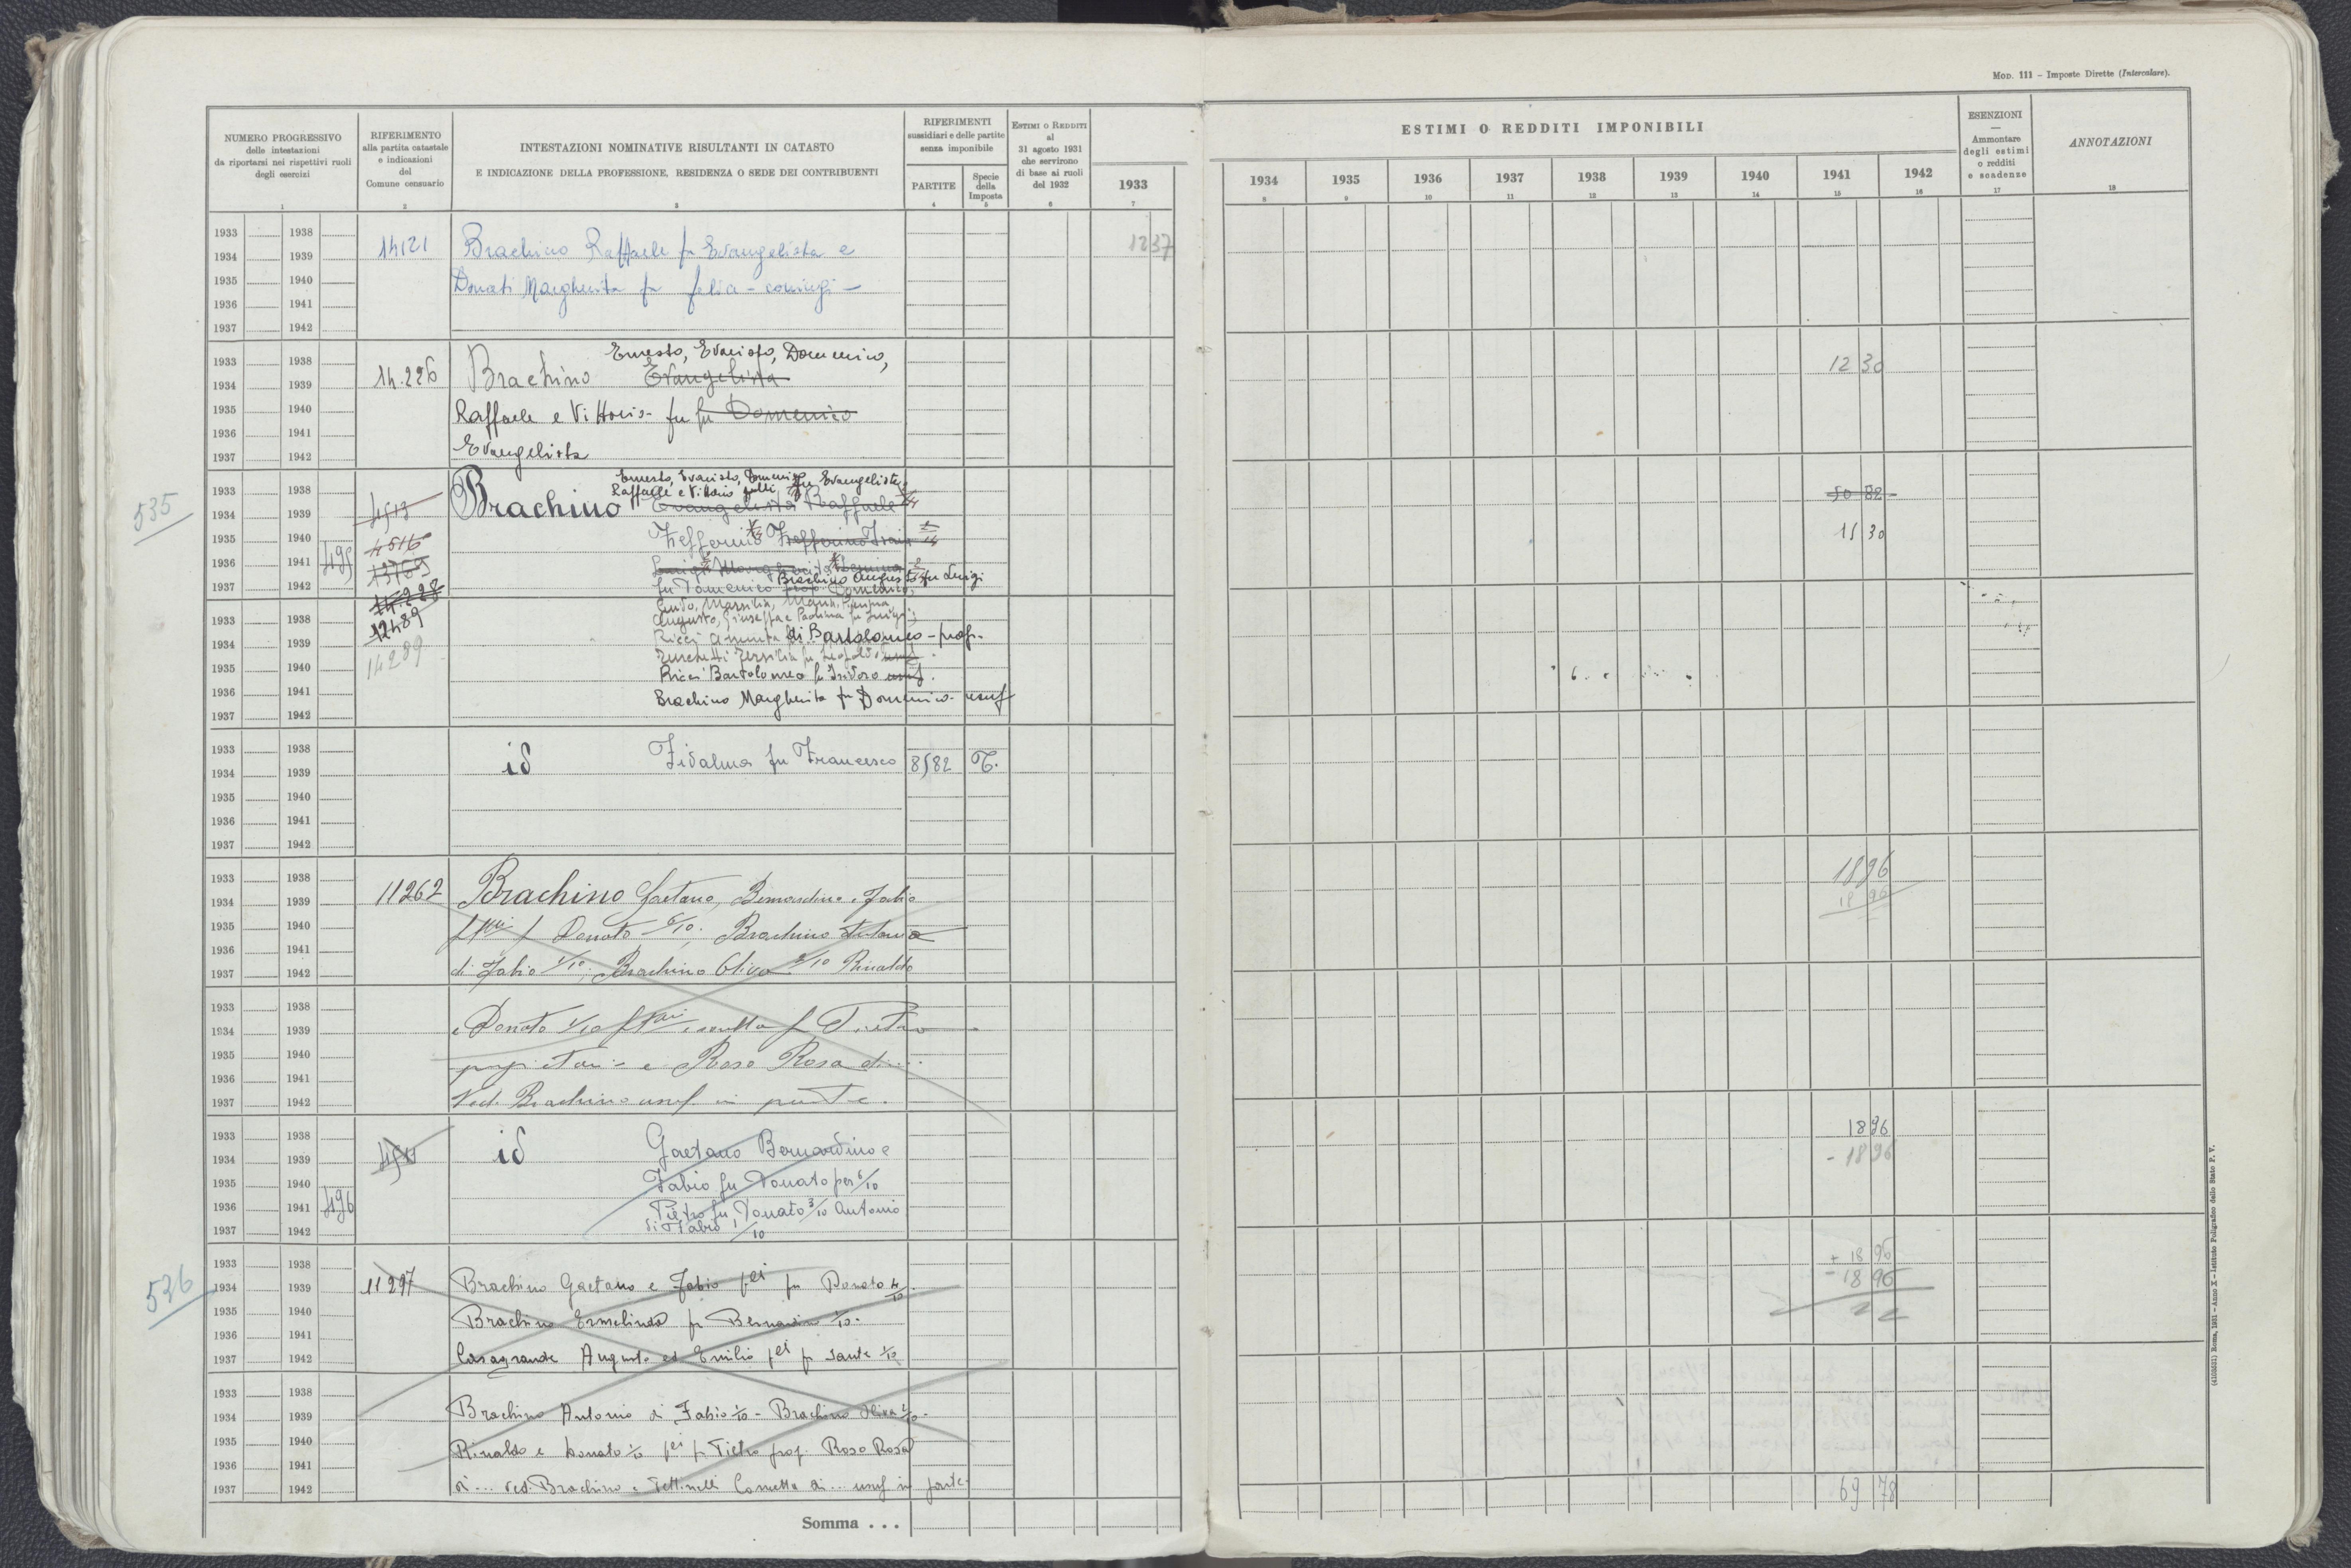 MOD. 111 – Imposte Dirette (Intercalare).
NUMERO PROGRESSIVO
delle intestazioni
da riportarsi nei rispettivi ruoli
degli esercizi
1
RIFERIMENTO
alla partita catastale
e indicazioni
del
Comune censuario
2
INTESTAZIONI NOMINATIVE RISULTANTI IN CATASTO
E INDICAZIONE DELLA PROFESSIONE, RESIDENZA O SEDE DEI CONTRIBUENTI
3
RIFERIMENTI
sussidiari e delle partite
senza imponibile
PARTITE
4
Specie
della
Imposta
5
ESTIMI O REDDITI
al
31 agosto 1931
che servirono
di base ai ruoli
del 1932
6
1933
7
ESTIMI O REDDITI IMPONIBILI
1934 1935 1936 1937 1938 1939 1940 1941 1942
8 9 10 11 12 13 14 15 16
ESENZIONI
—
Ammontare
degli estimi
o redditi
e scadenze
17
ANNOTAZIONI
18
1933 1938
1934 1939 14121 Brachino Raffaele fu Evangelista e 1237
1935 1940 Donati Margherita fu felia - coniugi -
1936 1941
1937 1942
1933 1938 Ernesto, Evaristo, Domenico,
1934 1939 14.226 Brachino Evangelista 12 30
1935 1940 Raffaele e Vittorio fu fu Domenico
1936 1941
1937 1942 Evangelista
535
1933 1938 Ernesto, Evaristo, Domenico fu Evangelista
Raffaele e Vittorio 50 82
1934 1939 4513 Brachino Evangelista Raffaele
1935 1940 4516 Zefferino Zefferino 15 30
1936 1941 495 13769 Luigi Margherita
Brachino Augusto fu Luigi
1937 1942 14.228 fu Domenico
Guido, Marsilia, Maria,
1933 1938 12489 Augusto, Giuseppa e Paolina fu Luigi
1934 1939 Ricci di Bartolomeo - prop.
1935 1940 14289 Ersilia fu Leopoldo usuf
1936 1941 Ricci Bartolomeo fu Isidoro usuf.
1937 1942 Brachino Margherita fu Domenico - usuf
1933 1938
1934 1939 id Fidalma fu Francesco 8582 T.
1935 1940
1936 1941
1937 1942
1933 1938 1896
1934 1939 11262 Brachino Gaetano, Bernardino e Fabio 18 96
1935 1940 f Donato 6/10; Brachino
1936 1941
1937 1942 di Fabio 1/10; Brachino Oliva 2/10 Rinaldo
1933 1938
1934 1939 e Donato 1/10 f Pietro
1935 1940
1936 1941 proprietari e Roso Rosa di...
1937 1942 Ved. Brachino usuf in parte.
1933 1938 1896
1934 1939 id Gaetano Bernardino e - 1896
1935 1940 Fabio fu Donato per 6/10
1936 1941 496 Pietro fu Donato 3/10 Antonio
1937 1942 di Fabio 1/10
536
1933 1938 + 18 96
1934 1939 11297 Brachino Gaetano e Fabio f.lli fu Donato 4/10 - 18 96
1935 1940 Brachino Ermelinda fu Bernardino 1/10.
1936 1941
1937 1942 Casagrande Augusto ed Emilio f.lli fu Sante 1/10
1933 1938
1934 1939 Brachino Antonio di Fabio 1/10 - Brachino Oliva 2/10 -
1935 1940 Rinaldo e Donato 1/10 f.lli fu Pietro prop. Roso Rosa
1936 1941
1937 1942 di ... ved. Brachino e Tettinelli Cornetta di ... usuf in parte. 69 78
Somma . . .
(4103631) Roma, 1931 – Anno X – Istituto Poligrafico dello Stato P. V.